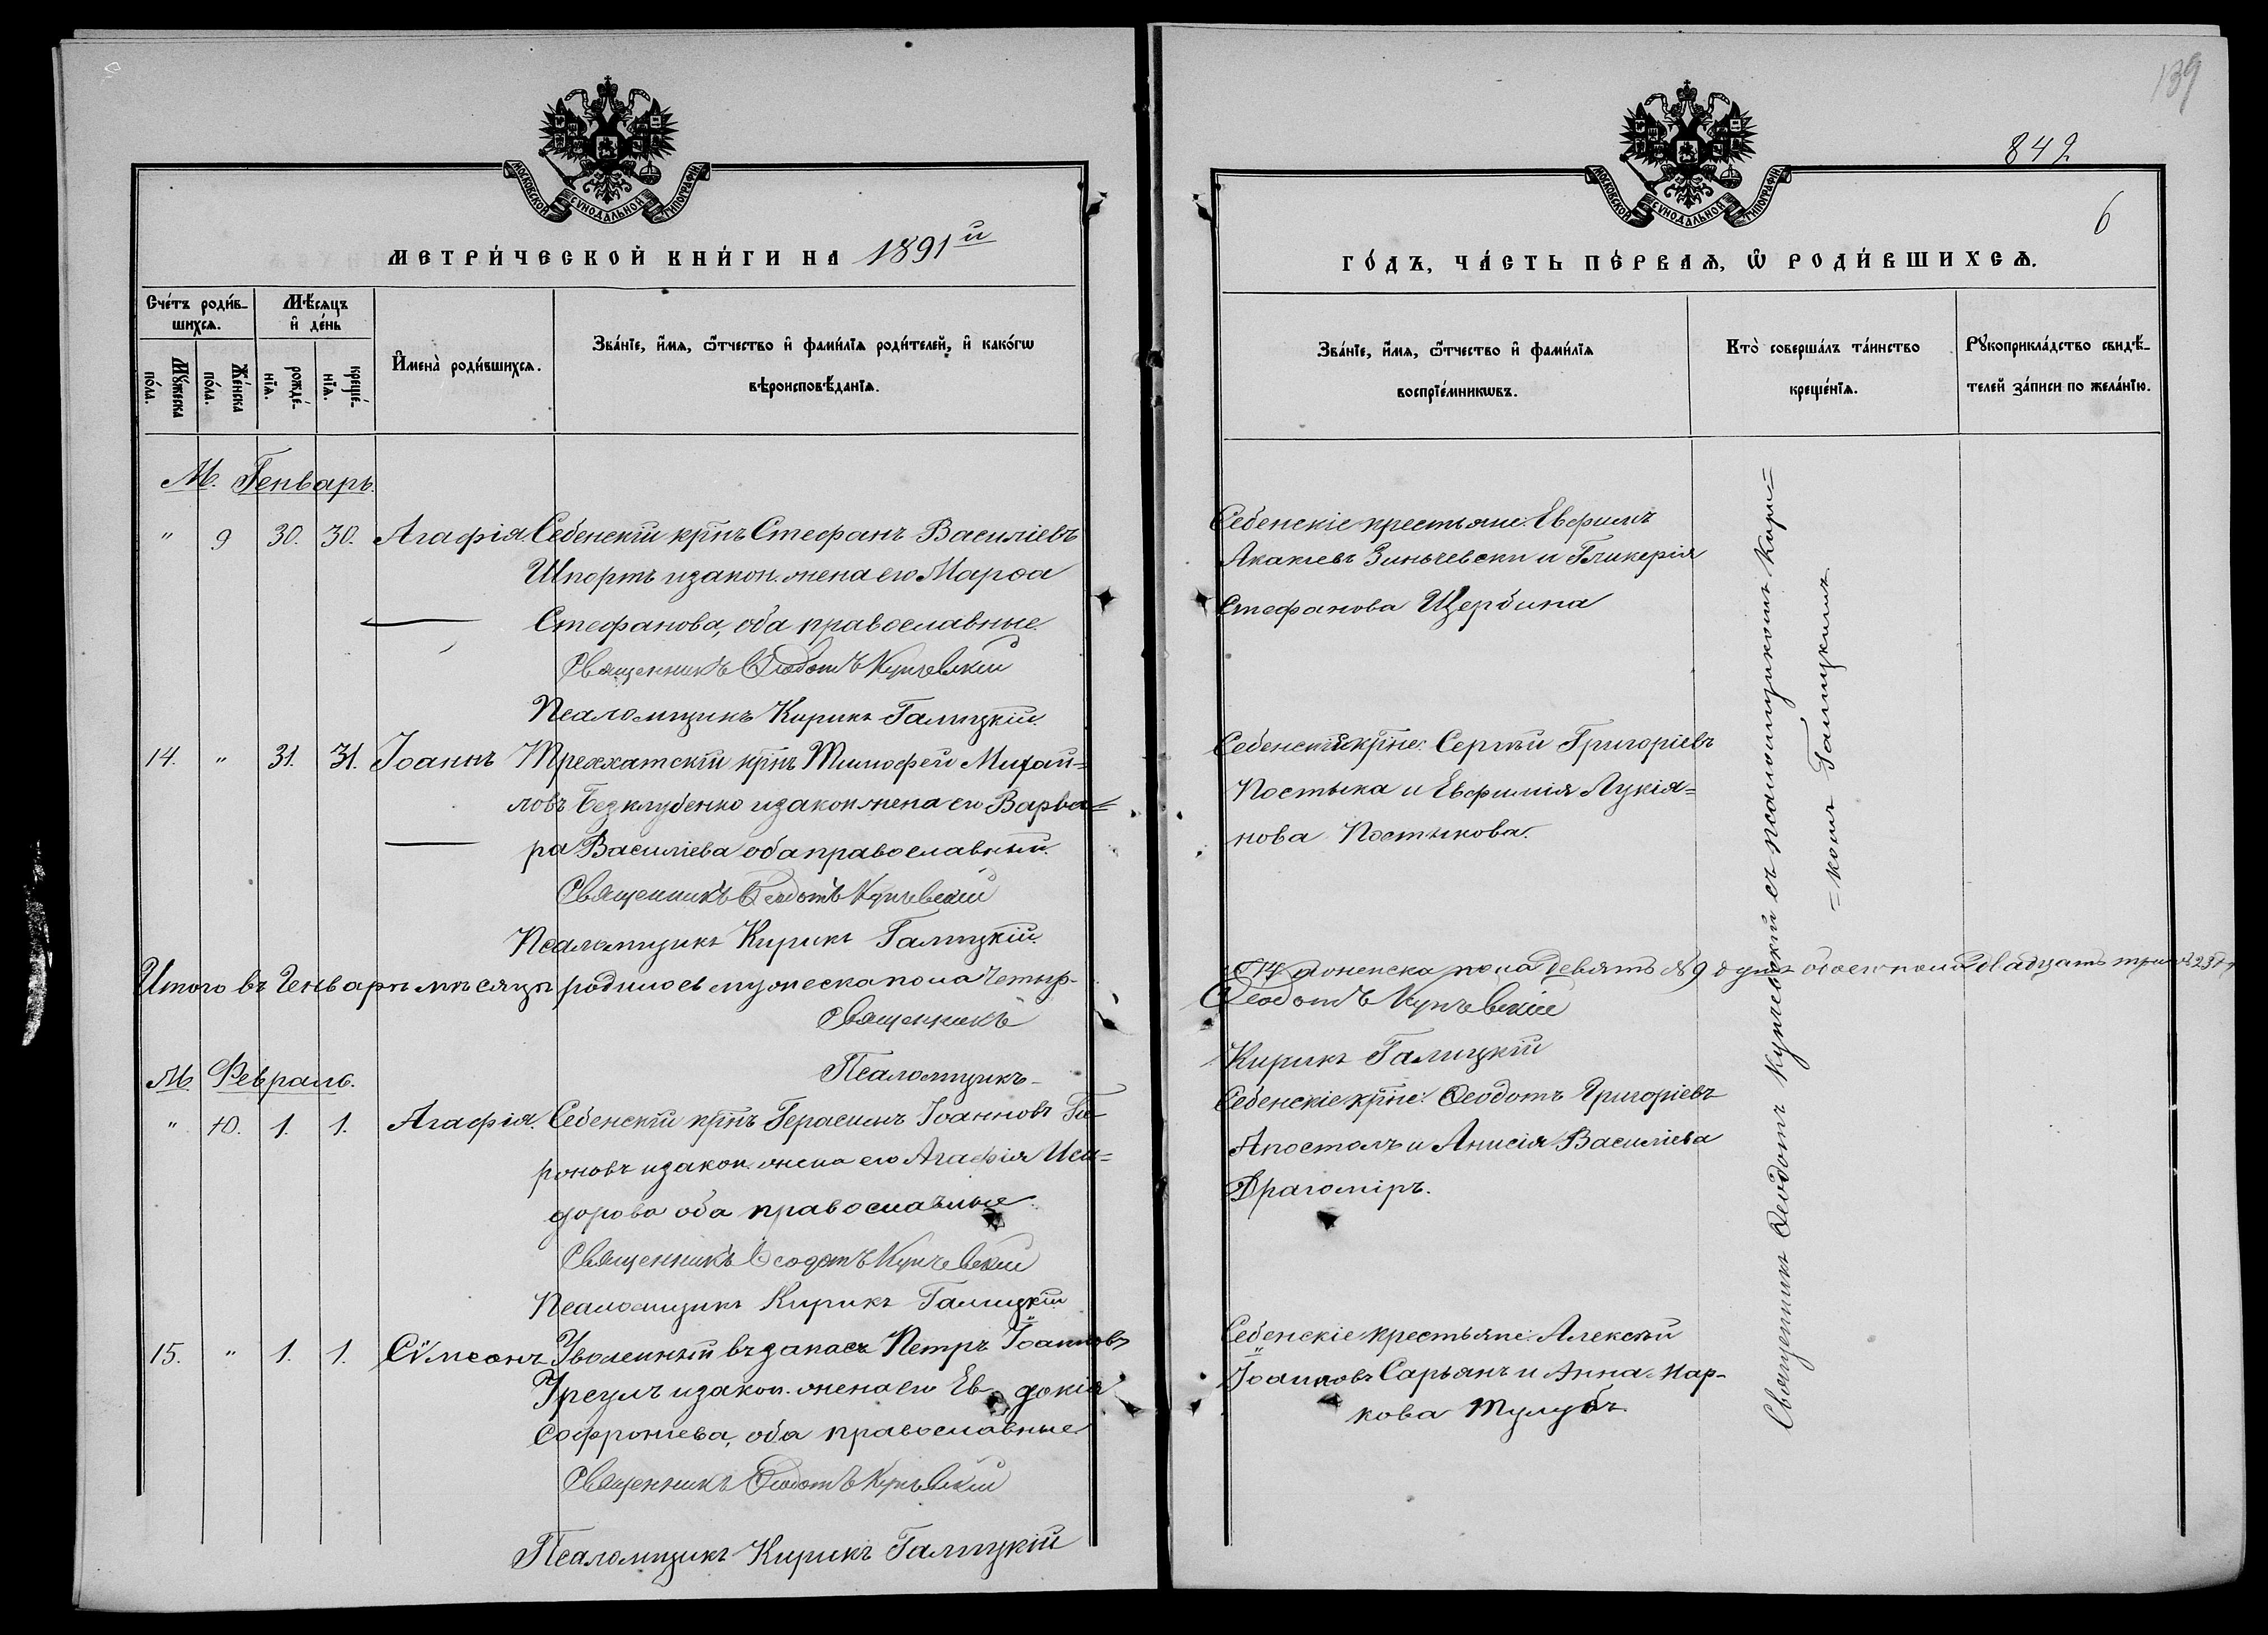 139
842
6
МОСКОВСКОЙ СѴНОДАЛЬНОЙ ТИПОГРАФІИ
МЕТРИ́ЧЕСКОЙ КНИ́ГИ НА 1891й
Сче́тъ роди́в-
шихсѧ.
Мѣ́сяцъ
и҆ де́нь
Мꙋ́жеска
по́ла.
Же́нска
по́ла.
рожде́-
нїѧ.
креще́-
нїѧ.
И҆мена̀ роди́вшихсѧ.
Зва́нїе, и҆́мѧ, ѻ҆́тчество и҆ фами́лїѧ роди́телей, и҆ како́гѡ
вѣроисповѣ́данїѧ.
М. Генварь.
" 9 30. 30. Агафія Себенскій крнъ Стефанъ Василіевъ
Шпортъ и закон. жена его Марѳа
Стефанова, оба православные.
Священникъ Ѳеодотъ Купчевскій
Псаломщикъ Кирикъ Галицкій.
14. " 31. 31. Іоаннъ Трехатскій крнъ Тимофей Михай=
ловъ Безклубенко и закон жена его Варва=
ра Василіева оба православныи.
Священникъ Ѳеодотъ Купчевскій
Псаломщикъ Кирикъ Галицкій.
Итого въ Генварѣ мѣсяцѣ родилось мужеска пола четыр-
Священникъ
Псаломщикъ
М Февраль.
" 10. 1. 1. Агафія. Себенскій крнъ Герасимъ Іоанновъ
роновъ и закон. жена его Агафія Иси=
дорова оба православные.
Священникъ Ѳеодотъ Купчевскій
Псаломщикъ Кирикъ Галицкій
15. " 1. 1. Сѵмеонъ Уволенный въ запасъ Петръ Іоанновъ
Урсулъ и закон. жена его Евдокія
Софроніева, оба православные
Священникъ Ѳеодотъ Купчевскій
Псаломщикъ Кирикъ Галицкій
МОСКОВСКОЙ СѴНОДАЛЬНОЙ ТИПОГРАФІИ
ГО́ДЪ, ЧА́СТЬ ПЕ́РВАѦ, Ѡ҆ РОДИ́ВШИХСѦ.
Зва́нїе, и҆́мѧ, ѻ҆́тчество и҆ фами́лїѧ
воспрїе́мникѡвъ.
Кто̀ соверша́лъ та́инство
креще́нїѧ.
Рꙋкоприкла́дство свидѣ́-
телей за́писи по жела́нїю.
Себенскіе крестьяне: Евфимъ
Акакіевъ Зинчевски и Гликерія
Стефанова Щербина
Себенскіи крне: Сергѣй Григоріевъ
Постыка и Евфимія Лукія=
нова Постыкова.
14 женска пола девять №9 обоего пола двадцать три №23
Ѳеодотъ Купчевскій
Кирикъ Галицкій
Себенскіе крне: Ѳеодотъ Григоріевъ
Апостолъ и Анисія Василіева
Драгоміръ.
Себенскіе крестьяне: Алексѣй
Іоанновъ Сарьянъ и Анна Мар-
кова Тулубъ
Священникъ Ѳеодотъ Купчевскій съ псаломщикомъ Кири=
=комъ Галицкимъ.